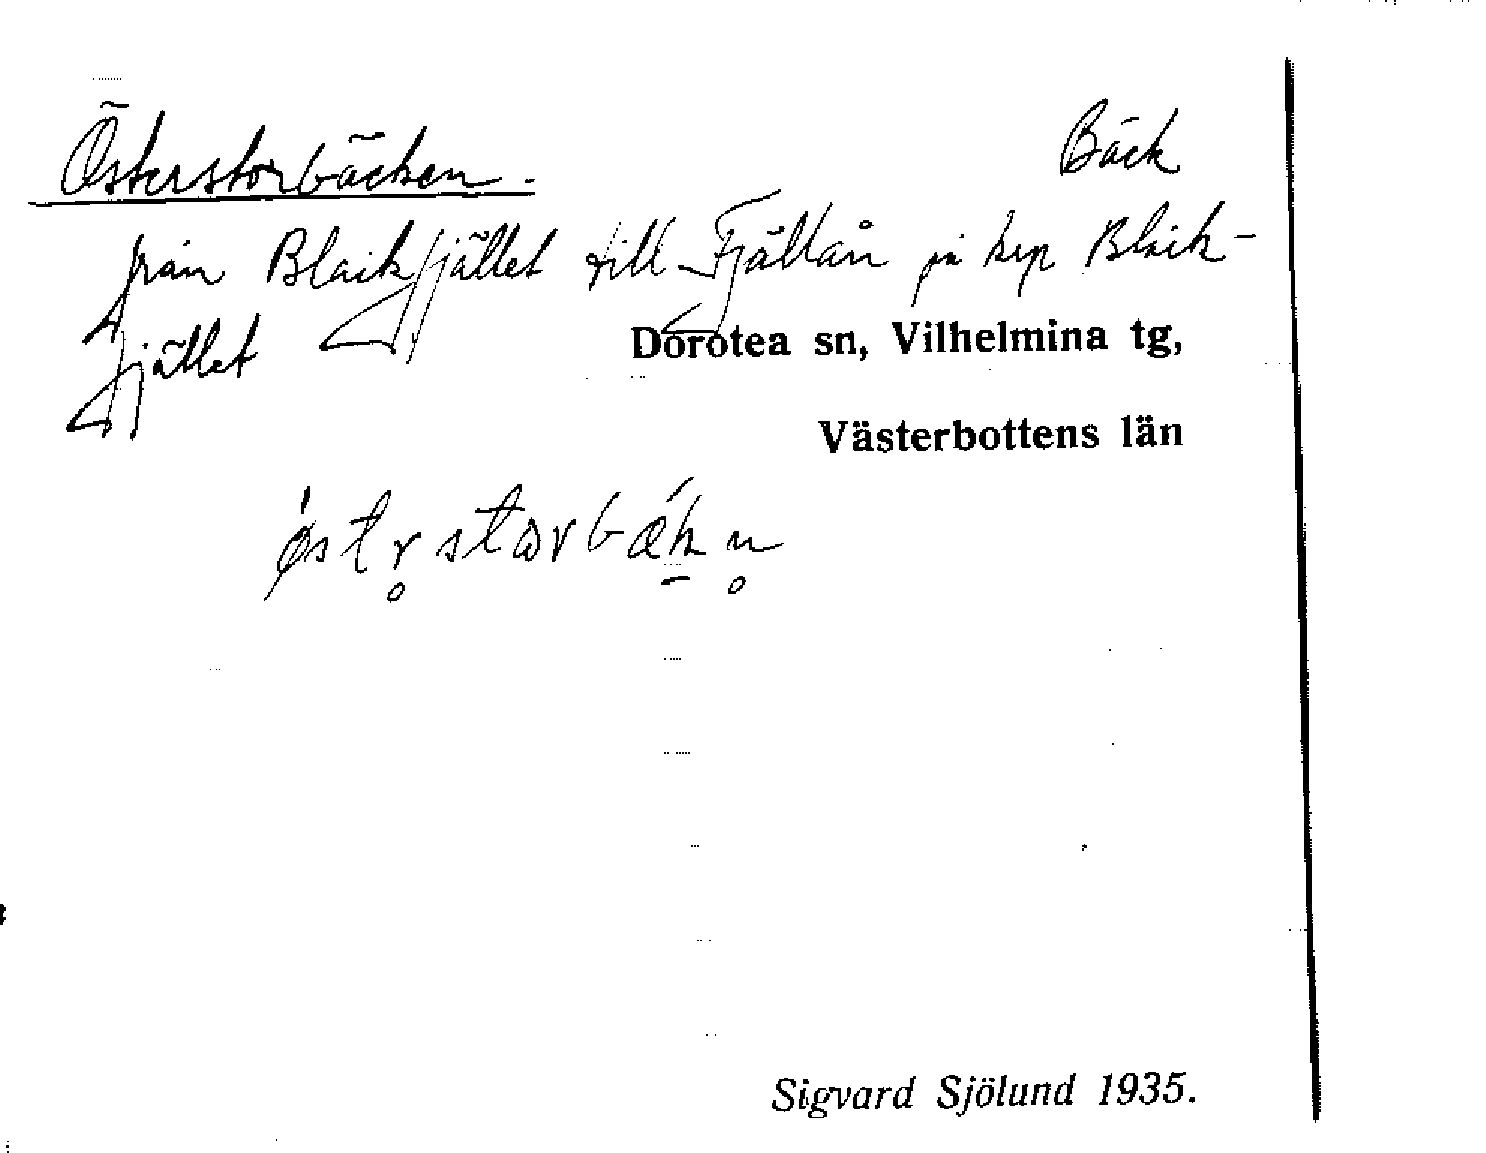 Österstorbäcken.
Bäck
från Blaikfjället till Fjällån på krp Blaik-
fjället
Dorotea sn, Vilhelmina tg,
Västerbottens län
Sigvard Sjölund 1935.